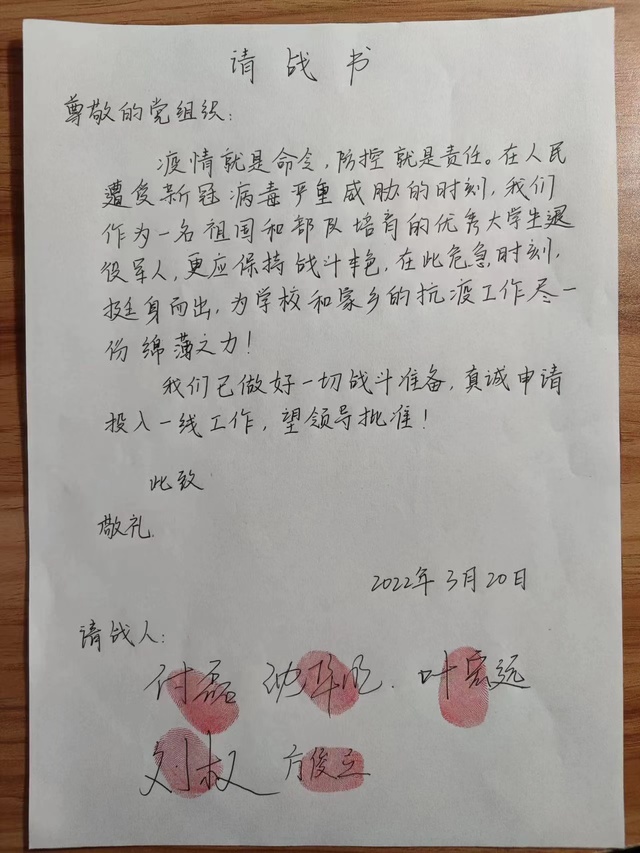 请战书
尊敬的党组织:
疫情就是命令,防控就是责任。在人民
遭受新冠病毒严重威胁的时刻,我们
作为一名祖国和部队培育的优秀大学生退
役军人,更应保持战斗本色,在此危急时刻,
挺身而出,为学校和家乡的抗疫工作尽一
份绵薄之力!
我们已做好一切战斗准备,真诚申请
投入一线工作,望领导批准!
此致
敬礼
2022年3月20日
请战人:
付磊 叶宏远
刘权 方俊立